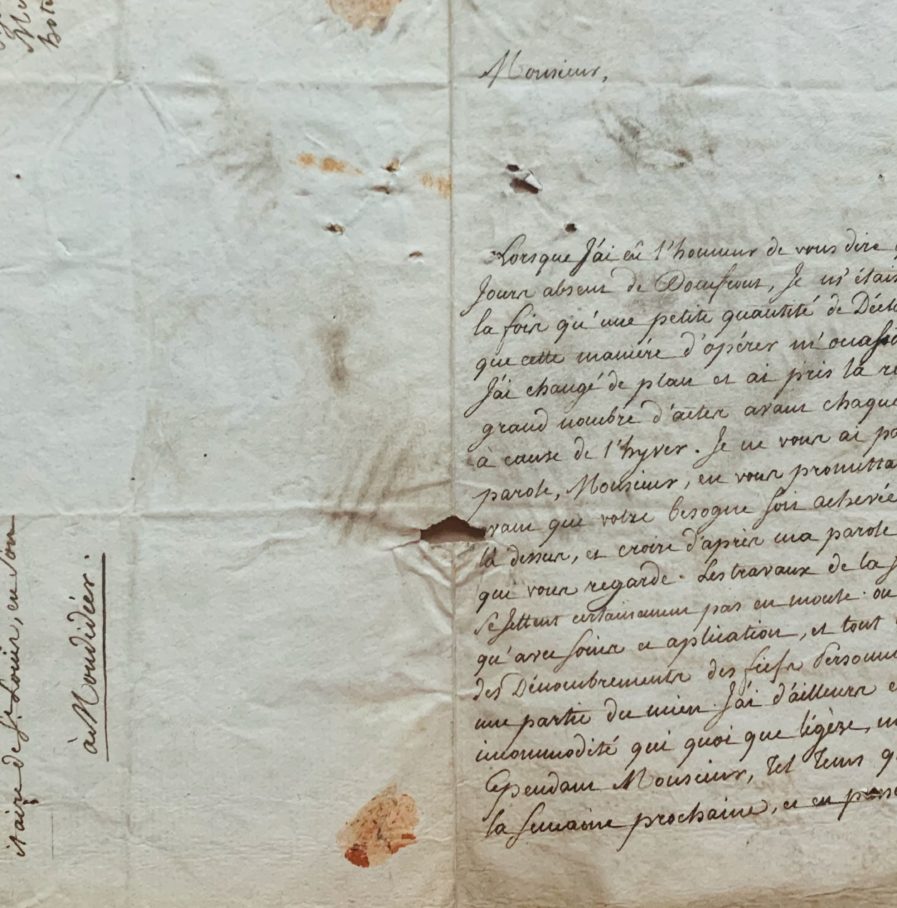 Monsieur,
Lorsque J'ai eû l'honneur de vous dire
Jours absent de Domfront, Je n'étais
la fois qu'une petite quantité de
que cette maniére d'opérer
J'ai changé de plan et ai pris la
grand nombre d'actes avant chaque
à cause de l'hyver. Je ne vous ai
parole, Monsieur, en vous
avant que votre besogne soit achevée
la dessus, et croire d'après ma parole
qui vous regarde. Les travaux de la
se Jettent certainement pas en moule. ou
qu'avec soins et aplication, et tout
des Dénombrements des fiefs
une partie du mien. J'ai d'ailleurs
incommodité qui quoi que légère,
Cependant Monsieur, tel tems
la semaine prochaine, et en
de St. Louis, en son
à Mondidiér.